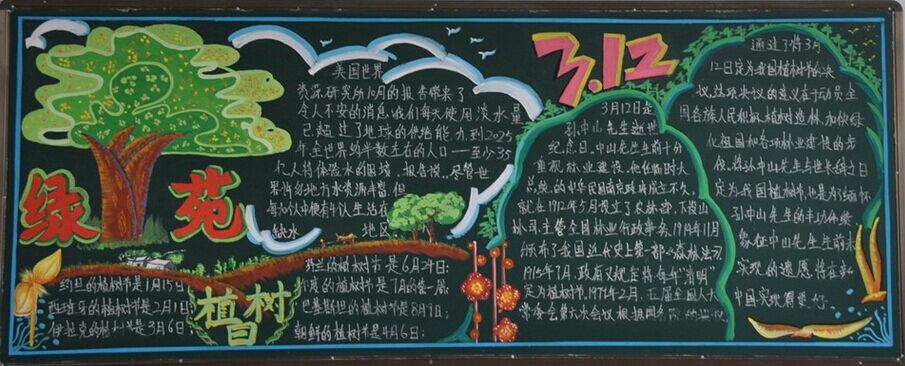 绿苑
美国世界
资源研究所10月的报告带来了
令人不安的消息:我们每天使用淡水量
已超过了地球的供给能力,到2025
年全世界约半数左右的人口——至少35
亿人将体验水的困境,报告说,尽管世
界许多地方水资源丰富,但
每
人中便有
人生活在
缺水 地区
约旦的植树节是1月15日
的植树节是2月1日
伊拉克的植树节是3月6日;
植树日
的植树节是6月24日;
的植树节是7月的第一周;
巴基斯坦的植树节是8月9日
朝鲜的植树节是4月6日;
3.12
3月12日是
孙中山先生逝世
纪念日。中山先生生前十分
重视林业建设。他任临时大
总统的中华民国南京政府成立不久,
就在1912年5月设立了农林部,下设山
林司,主管全国林业行政事务,1914年11月
颁布了我国近代史上第一部《森林法》
1915年7月,政府又规定将每年"清明"
定为植树节。1979年2月,五届全国人大
常委会第六次会议根据国务院
通过了将3月
12日定为我国植树节的决
议,这项决议的意义在于动员全
国各族人民积极植树造林,加快绿
化祖国和各项林业建设的步
伐。将孙中山先生与世长辞之日
定为我国植树节,也是为了缅怀
孙中山先生的丰功伟绩
象征中山先生生前未
实现的遗愿将在新
中国实现
更好。